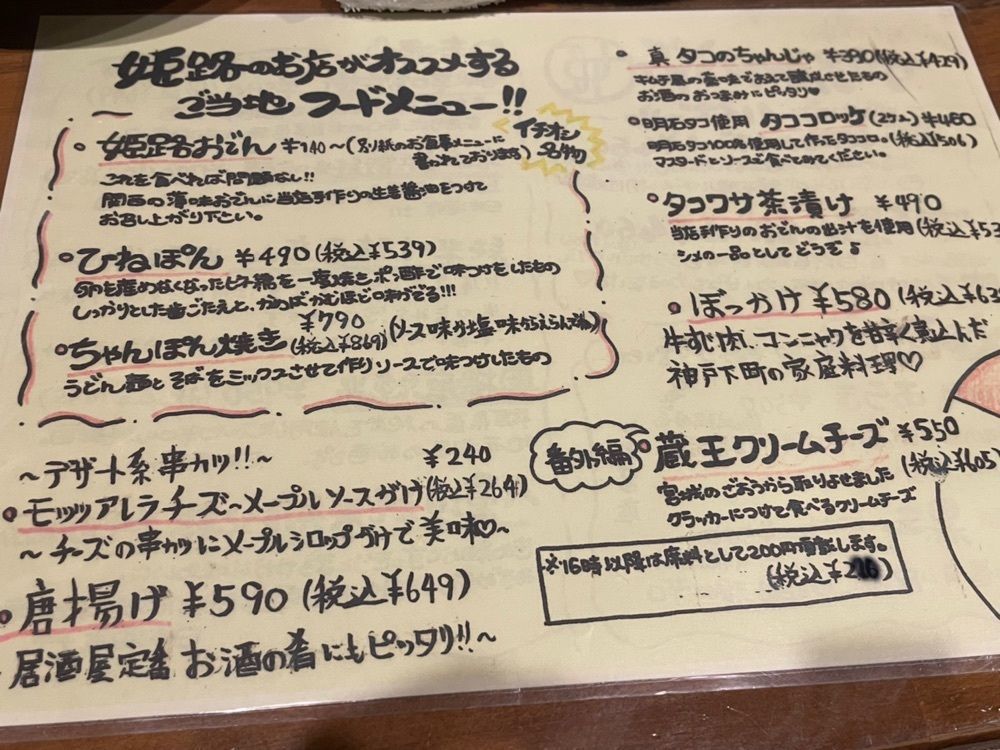 姫路のお店がオススメする
ご当地フードメニュー!!
イチオシ名物
・姫路おでん ¥140~(別り紙のお食事メニューに書かれております)
これを食べれば問題なし!!
関西の薄味おでんに当店手作りの生姜醤油をつけて
お召し上がり下さい。
・ひねぽん ¥490(税込¥539)
卵を産めなくなったヒネ鶏を一度焼きポン酢で味つけをしたもの
しっかりとした歯ごたえと、かめばかむほど味がでる!!!
・ちゃんぽん焼き ¥790(税込¥869)(ソース味か塩味かえらんで
うどん麺とそばをミックスさせて作りソースで味つけしたもの
~デザート系串カツ!!~
・モッツアレラチーズ~メープルソースがけ ¥240(税込¥264)
~チーズの串カツにメープルシロップがけで美味♡~
・唐揚げ ¥590(税込¥649)
居酒屋定番 お酒の肴にもピッタリ!!~
・真タコのちゃんじゃ ¥390(税込¥429)
キムチ風の
お酒のおつまみにピッタリ♡
・明石タコ使用 タココロッケ(2ケ入) ¥460(税込¥506)
明石タコ100%使用して作ったタココロッケ
マスタードとソースで食べてみてください。
・タコワサ茶漬け ¥490(税込¥53
当店手作りのおでんの出汁を使用
シメの一品としてどうぞ♪
・ぼっかけ ¥580(税込¥63
牛すじ肉、コンニャクを甘辛く煮込んだ
神戸下町の家庭料理♡
番外編
・蔵王クリームチーズ ¥550(税込¥605)
宮城のざおうから取りよせました
クラッカーにつけて食べるクリームチーズ
※16時以降は席料として200円頂戴します。
(税込¥2